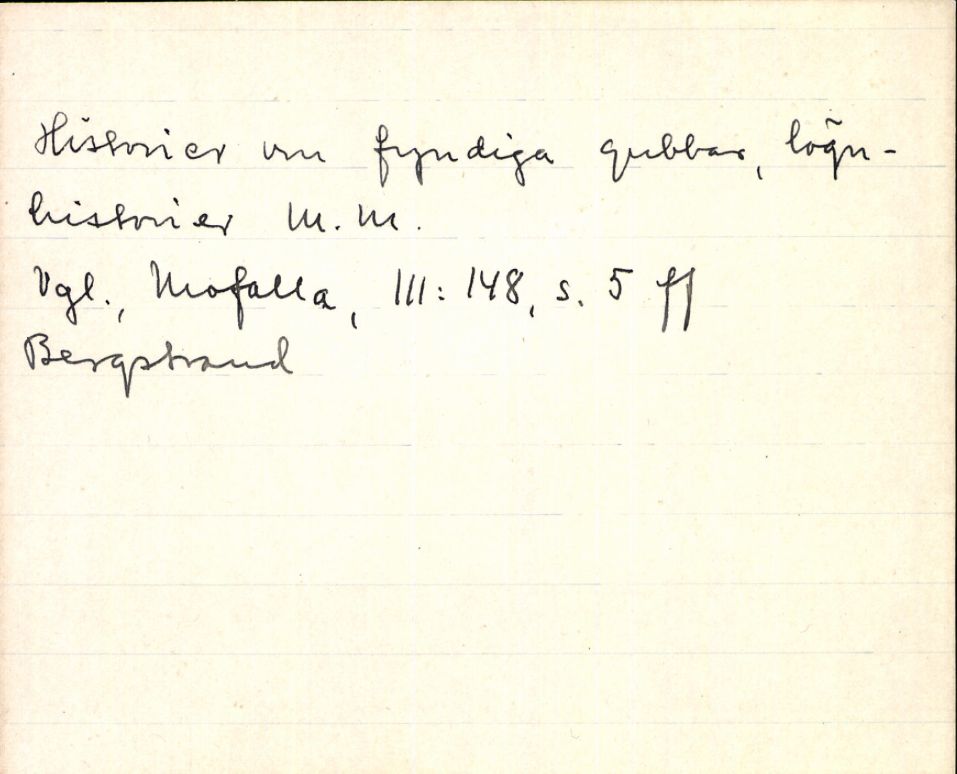 Historier om fyndiga gubbar, lögn-
historier m.m.
Vgl., Mofalla, III: 148, s. 5 ff
Bergstrand